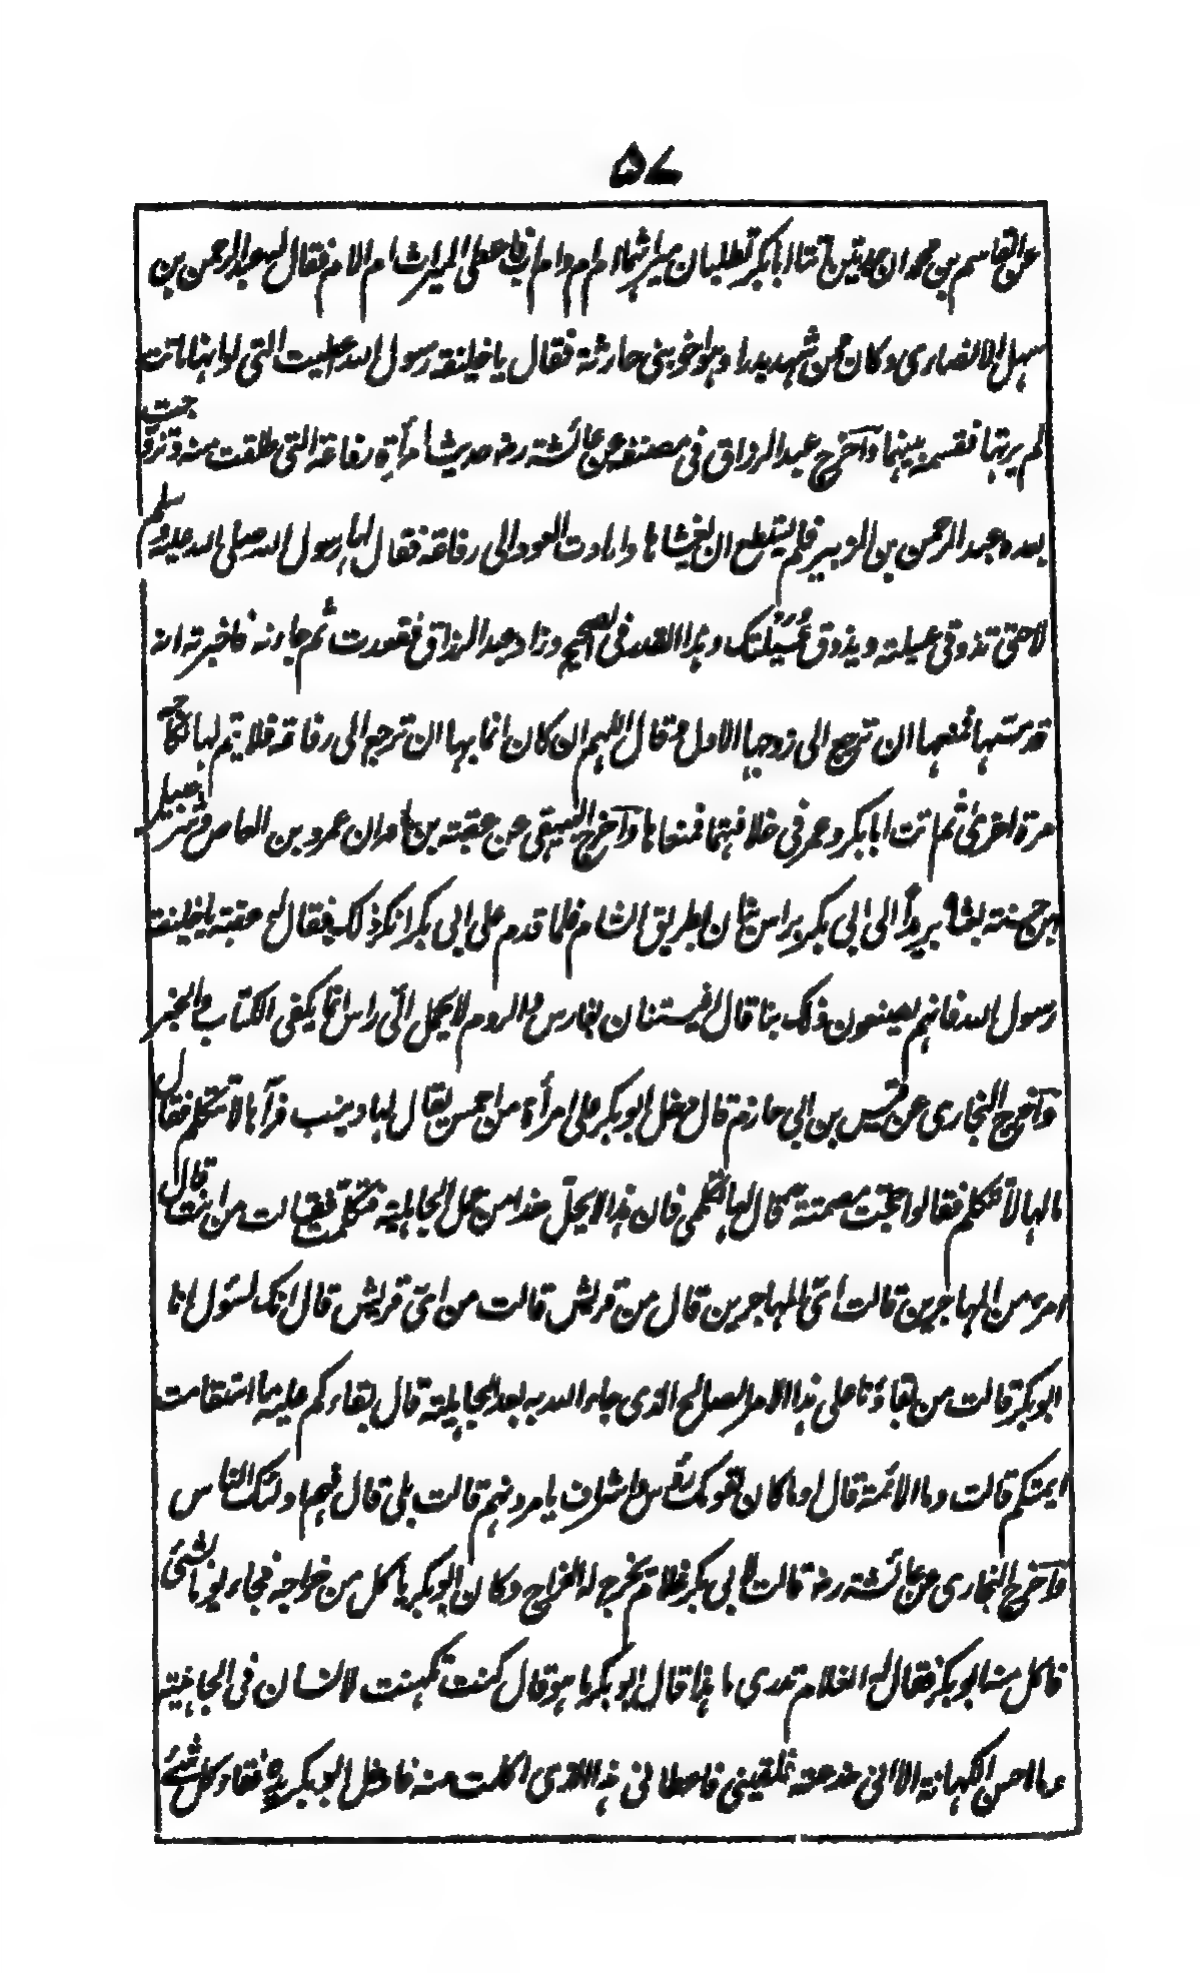 ۵۷
عن القاسم بن محمد ان جدتين اتتا ابا بكر تطلبان ميراثهما ام ام وام اب فاعطى الميراث ام الام فقال له عبد الرحمن بن
سهل الانصارى وكان ممن شهد بدرا وهو اخو بنى حارثة فقال يا خليفة رسول الله اعطيت التى لو انها ماتت
لم يرثها فقسمه بينهما وآخرج عبد الرزاق فى مصنفه عن عائشة رضه حديث امرأة رفاعة التى طلقت منه وتزوجت
بعده عبد الرحمن بن الزبير فلم يستطع ان يغشاها وارادت العود الى رفاعة فقال لها رسول الله صلى الله عليه وسلم
لا حتى تذوقى عسيلته ويذوق عُسَيْلتك وهذا القدر فى الصحيح وزاد عبد الرزاق فقعدت ثم جاءته فاخبرته انه
قد مستها فمنعها ان ترجع الى زوجها الاول وقال اللهم ان كان انما بها ان ترجع الى رفاعة فلا يتم لها نكاحه
مرة اخرى ثم اتت ابا بكر وعمر فى خلافتهما فمنعاها وآخرج البيهقى عن عقبة بن عامر ان عمرو بن العاص وشرحبيل
ابن حسنة بعثاه بريداً الى ابى بكر براس بنان بطريق الشام فلما قدم على ابى بكر انكر ذلك فقال له عقبة يا خليفة
رسول الله فانهم يصنعون ذلك بنا قال افيستنان بفارس والروم لا يحمل الىّ راس انما يكفى الكتاب والخبر
وآخرج البخارى عن قيس بن ابى حازم قال دخل ابو بكر على امرأة من احمس يقال لها زينب فرآها لا تتكلم فقال
ما لها لا تتكلم فقالوا حجت مصمتة قال لها تكلمى فان هذا لا يحلّ هذا من عمل الجاهلية فتكلمت فقالت من انت قال
امرء من المهاجرين قالت اىّ المهاجرين قال من قريش قالت من اىّ قريش قال انك لسئول انا
ابو بكر قالت من بقاؤنا على هذا الامر الصالح الذى جاء الله به بعد الجاهلية قال بقاءكم عليه ما استقامت
ايمتكم قالت وما الائمة قال اوما كان لقومك رؤس واشراف يامرونهم قالت بلى قال فهم اولئك الناس
وآخرج البخارى عن عائشة رضه قالت لابى بكر غلام يخرج له الخراج وكان ابو بكر ياكل من خراجه فجاء يوما بشئ
فاكل منه ابو بكر فقال له الغلام تدرى ما هذا قال ابو بكر ما هو قال كنت تكهنت لانسان فى الجاهلية
وما احسن الكهانة الا انى خدعته فلقينى فاعطانى هذا الذى اكلت منه فادخل ابو بكر يده فقاء كل شئ